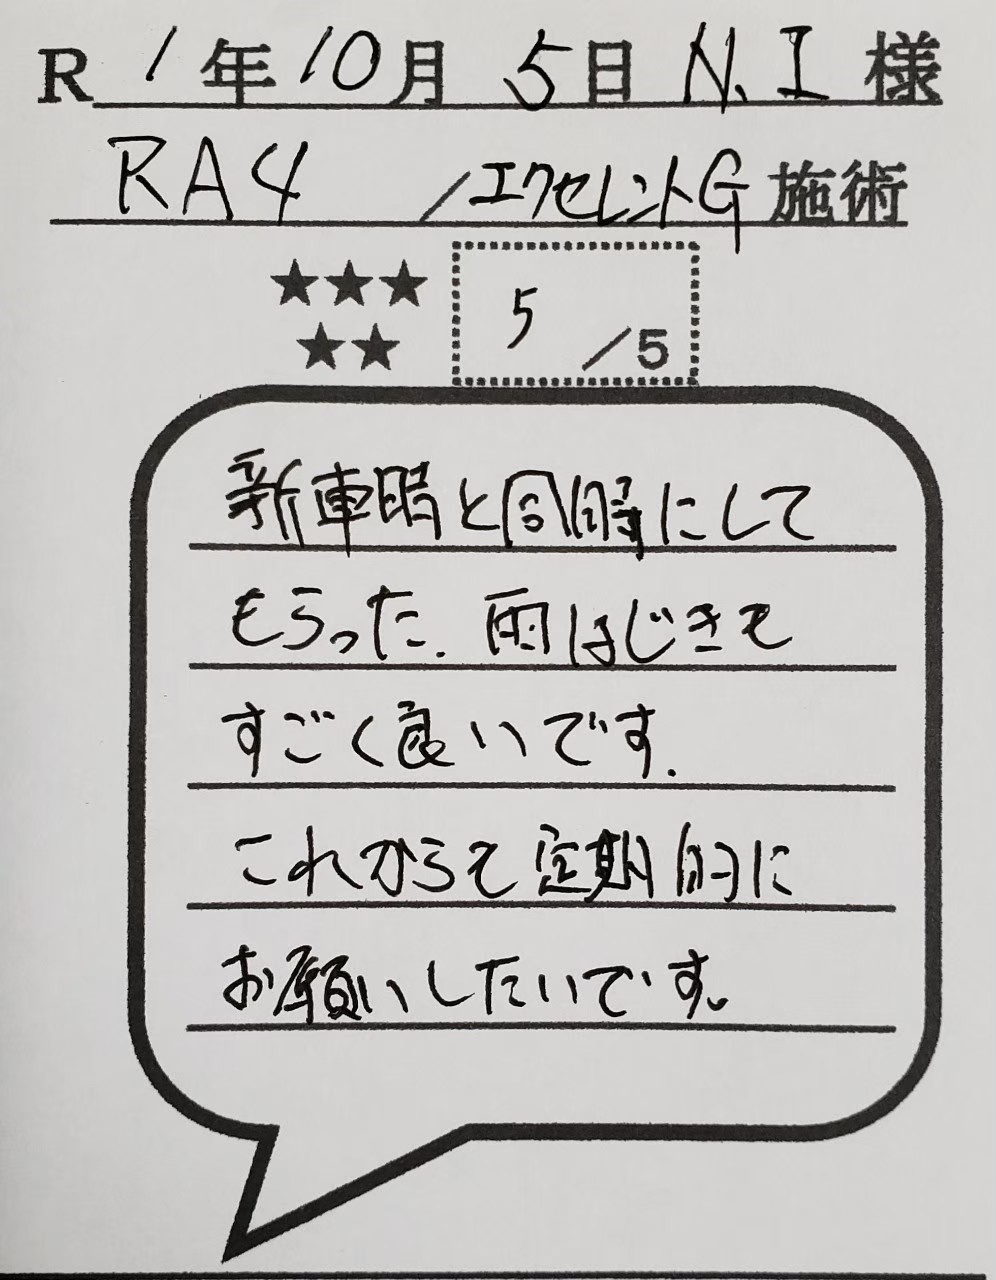 R 1年10月5日 N.I 様
RA4 /エクセレントG 施術
★★★
★★
5/5
新車時と同時にして
もらった. 雨はじきも
すごく良いです.
これからも定期的に
お願いしたいです。